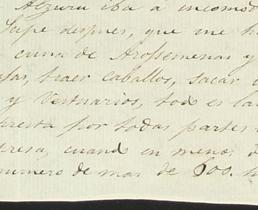 Alzuru iba a incomod
Supe despues, que me h
cuma de Arosemenas y
sas, traer caballos, sacar
y Vestuarios, tod es la
presta por todas partes
presa, cuando en menos d
numero de mas de 600. h